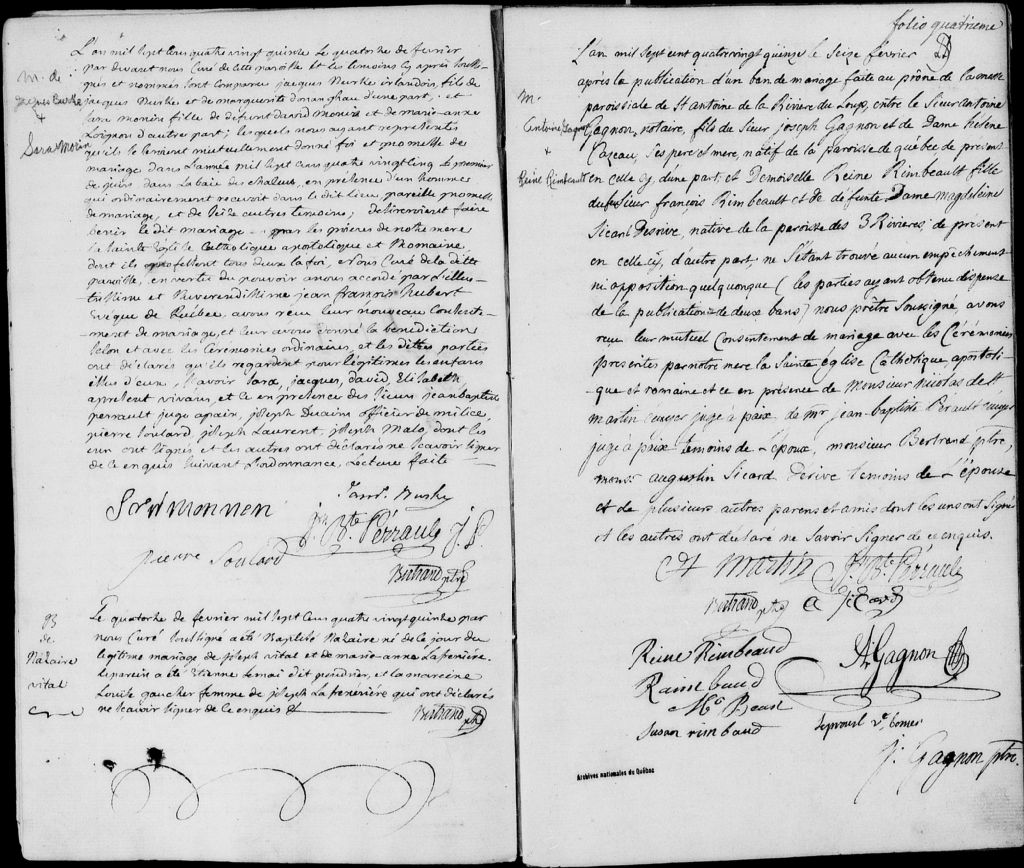 L'an mil sept cens quatre vingt quinze le quatorze de fevrier
par devant nous Curé de cette paroisse et les temoins cy après sousig-
nés et nommés sont comparus jacques Burke irlandois, fils de
jacques Burke et de marguerite donaghau d'une part, et
sara monïere fille de defunt david monïere et de marie-anne
Lorgnon d'autre part; lesquels nous ayant representés
qu'ils se seroient mutuellement donné foi et promesse de
mariage dans l'année mil sept cens quatre vingt cinq le premier
de juin dans la baie des chaleurs, en présence d'un homme
qui ordinairement recevoit dans le dit lieu pareille promesse
de mariage, et de seize autres temoins; desireroient faire
benir le dit mariage par les prieres de notre mere
la sainte Eglise Catholique apostolique et Romaine,
dont ils professent tous deux la foi, Nous Curé de la ditte
paroisse, en vertu du pouvoir a nous accordé par l'illus-
trissime et Reverendissime jean françois hubert
Evêque de Quebec, avons reçu leur nouveau consente-
ment de mariage, et leur avons donné la benediction
selon et avec les Ceremonies ordinaires, et les dittes parties
ont déclarés qu'ils regardent pour légitimes les enfans
issus d'eux, sçavoir sara, jacques, david, Elisabeth
apresent vivans, et ce en présence des sieurs jean baptiste
perrault juge apaix, joseph officier de milice,
pierre soulard, joseph Laurent, joseph malo, dont les
uns ont signés et les autres ont déclarés ne sçavoir signer
de ce enquis suivant l'ordonnance, lecture faite
m. de
jacques Burke
+
Sara Morin
Jams. Burke
Sara monnen
Jn. Bte. Pérrault J. P.
pierre Soulard
Bertrand ptre
B
de
Nazaire
vital
Le quatorze de fevrier mil sept cens quatre vingt quinze par
nous Curé soussigné a eté Baptisé Nazaire né de ce jour du
legitime mariage de joseph vital et de marie-anne Laferiere.
Le parein a eté Etienne Lemai dit poudrier, et la mareine
Louise gaucher femme de joseph Laferiere qui ont déclarés
ne sçavoir signer de ce enquis
Bertrand ptre
folio quatrieme
L'an mil sept cent quatrevingt quinze le seize fevrier
après la publication d'un ban de mariage faite au prône de la messe
paroissiale de St antoine de la Rivière du Loup, entre le Sieur antoine
Gagnon, notaire, fils du Sieur joseph Gagnon et de Dame hélène
Cazeau, ses pere et mere, natif de la paroisse de québec de présent
en celle cy, d'une part, et Demoiselle Reine Rimbeault fille
du Sieur françois Rimbeault et de defunte Dame magdeleine
Sicard Desrive, native de la paroisse des 3 Rivières, de présent
en celle cy, d'autre part, ne s'étant trouvé aucun empêchement
ni opposition quelquonque (les parties ayant obtenu dispense
de la publication de deux bans) nous prêtre soussigné, avons
reçu leur mutuel consentement de mariage avec les Cérémonies
prescrites par notre mere la Sainte église Catholique, apostoli-
que et romaine et ce en présence de Monsieur Nicolas de St
martin ecuyer juge à paix de mr jean-baptiste Perault ecuyer
juge à paix temoins de l'époux, monsieur Bertrand ptre,
monsr augustin Sicard Derive temoins de l'épouse
et de plusieurs autres parens et amis dont les uns ont signé
et les autres ont déclaré ne savoir signer de ce enquis.
m.
Antoine Gagnon
+
Reine Rimbeault
St Martin
Jn Bte Pérrault
Bertrand ptre
A Sicard
Reine Rimbeaud
A. Gagnon
Raimbaud
susan rimbaud
J. Gagnon ptre.
Archives nationales du Québec